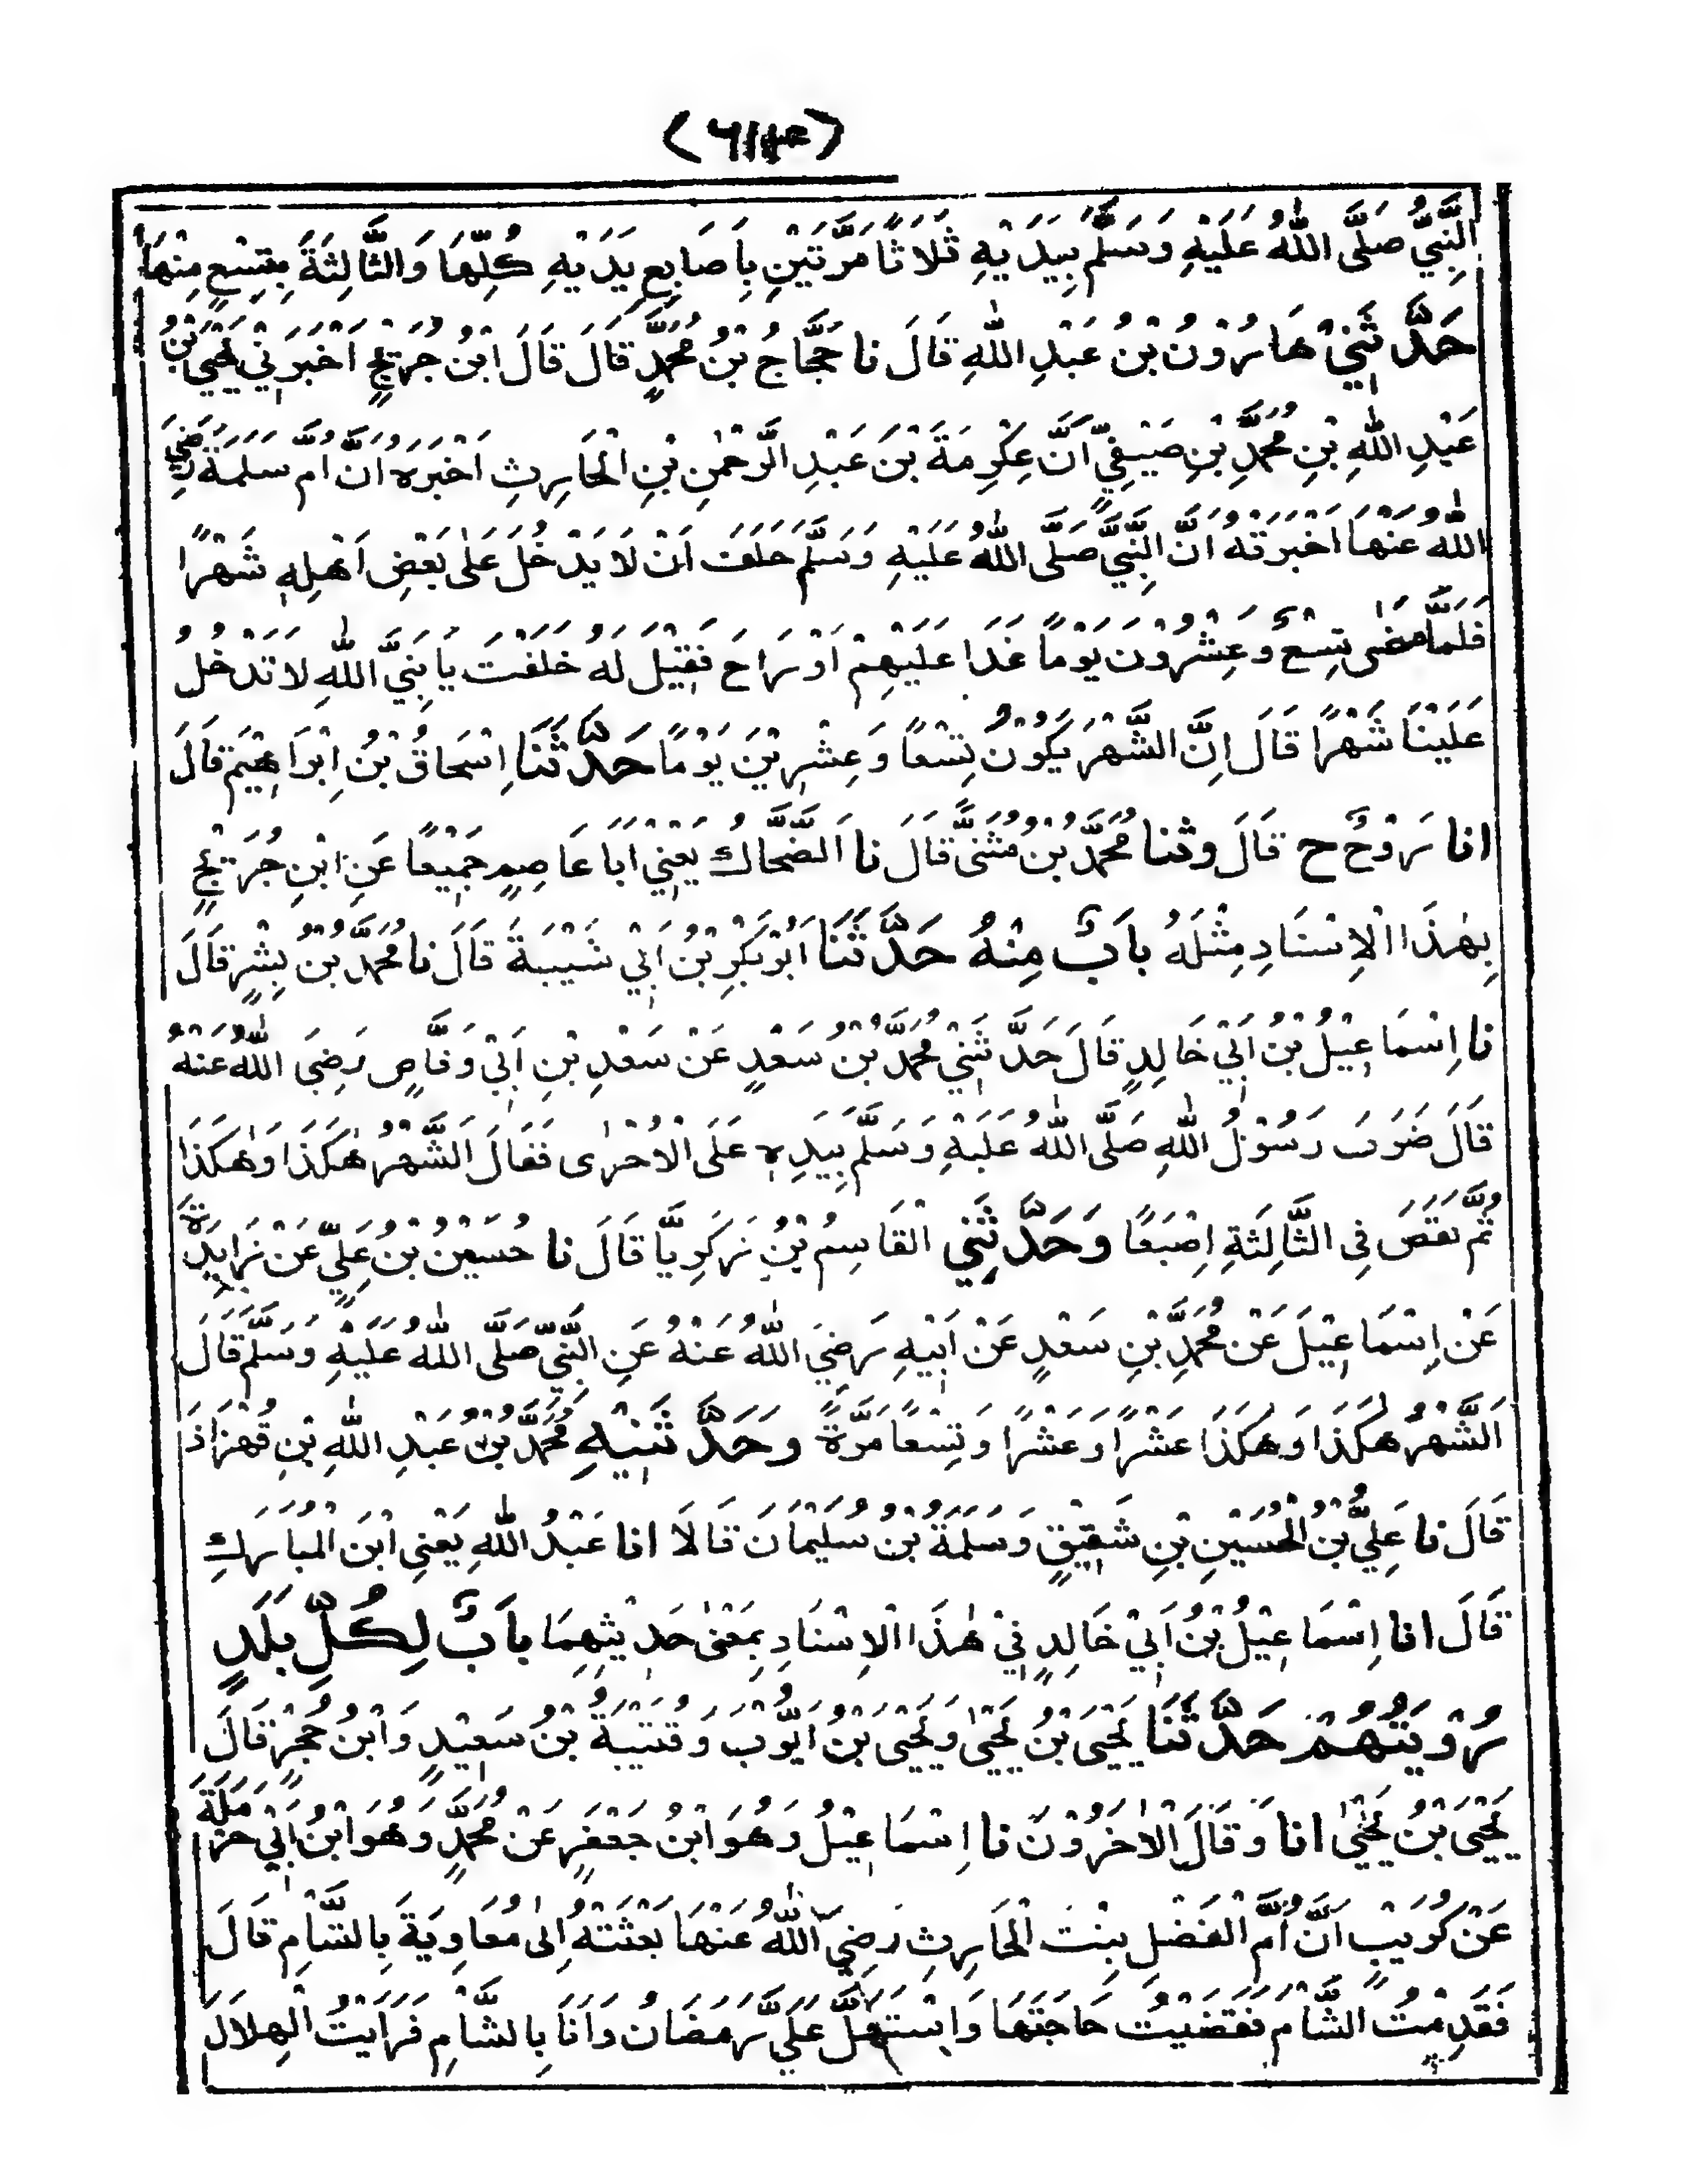 (۶۱۳)
النَّبِيُّ صَلَّى اللهُ عَلَيْهِ وَسَلَّمَ بِيَدَيْهِ ثَلَاثًا مَرَّتَيْنِ بِاَصَابِعِ يَدَيْهِ كُلِّهَا وَالثَّالِثَةَ بِتِسْعٍ مِنْهَا
حَدَّثَنِيْ هَارُوْنُ بْنُ عَبْدِ اللهِ قَالَ نا حَجَّاجُ بْنُ مُحَمَّدٍ قَالَ قَالَ ابْنُ جُرَيْجٍ اَخْبَرَنِيْ يَحْيَى بْنُ
عَبْدِ اللهِ بْنِ مُحَمَّدِ بْنِ صَيْفِيٍّ اَنَّ عِكْرِمَةَ بْنَ عَبْدِ الرَّحْمٰنِ بْنِ الْحَارِثِ اَخْبَرَهُ اَنَّ اُمَّ سَلَمَةَ رَضِيَ
اللهُ عَنْهَا اَخْبَرَتْهُ اَنَّ النَّبِيَّ صَلَّى اللهُ عَلَيْهِ وَسَلَّمَ حَلَفَ اَنْ لَا يَدْخُلَ عَلٰى بَعْضِ اَهْلِهٖ شَهْرًا
فَلَمَّا مَضٰى تِسْعٌ وَعِشْرُوْنَ يَوْمًا غَدَا عَلَيْهِمْ اَوْ رَاحَ فَقِيْلَ لَهُ حَلَفْتَ يَا نَبِيَّ اللهِ لَا تَدْخُلُ
عَلَيْنَا شَهْرًا قَالَ اِنَّ الشَّهْرَ يَكُوْنُ تِسْعًا وَعِشْرِيْنَ يَوْمًا حَدَّثَنَا اِسْحَاقُ بْنُ اِبْرَاهِيْمَ قَالَ
انا رَوْحٌ ح قَالَ وثنا مُحَمَّدُ بْنُ مُثَنًّى قَالَ نا الضَّحَّاكُ يَعْنِيْ اَبَا عَاصِمٍ جَمِيْعًا عَنِ ابْنِ جُرَيْجٍ
بِهٰذَا الْاِسْنَادِ مِثْلَهُ بَابٌ مِنْهُ حَدَّثَنَا اَبُوْ بَكْرِ بْنُ اَبِيْ شَيْبَةَ قَالَ نا مُحَمَّدُ بْنُ بِشْرٍ قَالَ
نا اِسْمَاعِيْلُ بْنُ اَبِيْ خَالِدٍ قَالَ حَدَّثَنِيْ مُحَمَّدُ بْنُ سَعْدٍ عَنْ سَعْدِ بْنِ اَبِيْ وَقَّاصٍ رَضِيَ اللهُ عَنْهُ
قَالَ ضَرَبَ رَسُوْلُ اللهِ صَلَّى اللهُ عَلَيْهِ وَسَلَّمَ بِيَدِهٖ عَلَى الْاُخْرٰى فَقَالَ الشَّهْرُ هٰكَذَا وَهٰكَذَا
ثُمَّ نَقَصَ فِى الثَّالِثَةِ اِصْبَعًا وَحَدَّثَنِي الْقَاسِمُ بْنُ زَكَرِيَّا قَالَ نا حُسَيْنُ بْنُ عَلِيٍّ عَنْ زَايِدَةَ
عَنْ اِسْمَاعِيْلَ عَنْ مُحَمَّدِ بْنِ سَعْدٍ عَنْ اَبِيْهِ رَضِيَ اللهُ عَنْهُ عَنِ النَّبِيِّ صَلَّى اللهُ عَلَيْهِ وَسَلَّمَ قَالَ
الشَّهْرُ هٰكَذَا وَهٰكَذَا عَشْرًا وَعَشْرًا وَتِسْعًا مَرَّةً وَحَدَّثَنِيْهِ مُحَمَّدُ بْنُ عَبْدِ اللهِ بْنِ قُهْزَاذَ
قَالَ نا عَلِيُّ بْنُ الْحُسَيْنِ بْنِ شَقِيْقٍ وَسَلَمَةُ بْنُ سُلَيْمَانَ قَالَا انا عَبْدُ اللهِ يَعْنِى ابْنَ الْمُبَارَكِ
قَالَ انا اِسْمَاعِيْلُ بْنُ اَبِيْ خَالِدٍ فِيْ هٰذَا الْاِسْنَادِ بِمَعْنٰى حَدِيْثِهِمَا بَابٌ لِكُلِّ بَلَدٍ
رُؤْيَتُهُمْ حَدَّثَنَا يَحْيَى بْنُ يَحْيٰى وَيَحْيَى بْنُ اَيُّوْبَ وَقُتَيْبَةُ بْنُ سَعِيْدٍ وَابْنُ حُجْرٍ قَالَ
يَحْيَى بْنُ يَحْيٰى انا وَقَالَ الْاٰخَرُوْنَ نا اِسْمَاعِيْلُ وَهُوَ ابْنُ جَعْفَرٍ عَنْ مُحَمَّدٍ وَهُوَ ابْنُ اَبِيْ حَرْمَلَةَ
عَنْ كُرَيْبٍ اَنَّ اُمَّ الْفَضْلِ بِنْتَ الْحَارِثِ رَضِيَ اللهُ عَنْهَا بَعَثَتْهُ اِلٰى مُعَاوِيَةَ بِالشَّامِ قَالَ
فَقَدِمْتُ الشَّامَ فَقَضَيْتُ حَاجَتَهَا وَاسْتُهِلَّ عَلَيَّ رَمَضَانُ وَاَنَا بِالشَّامِ فَرَاَيْتُ الْهِلَالَ